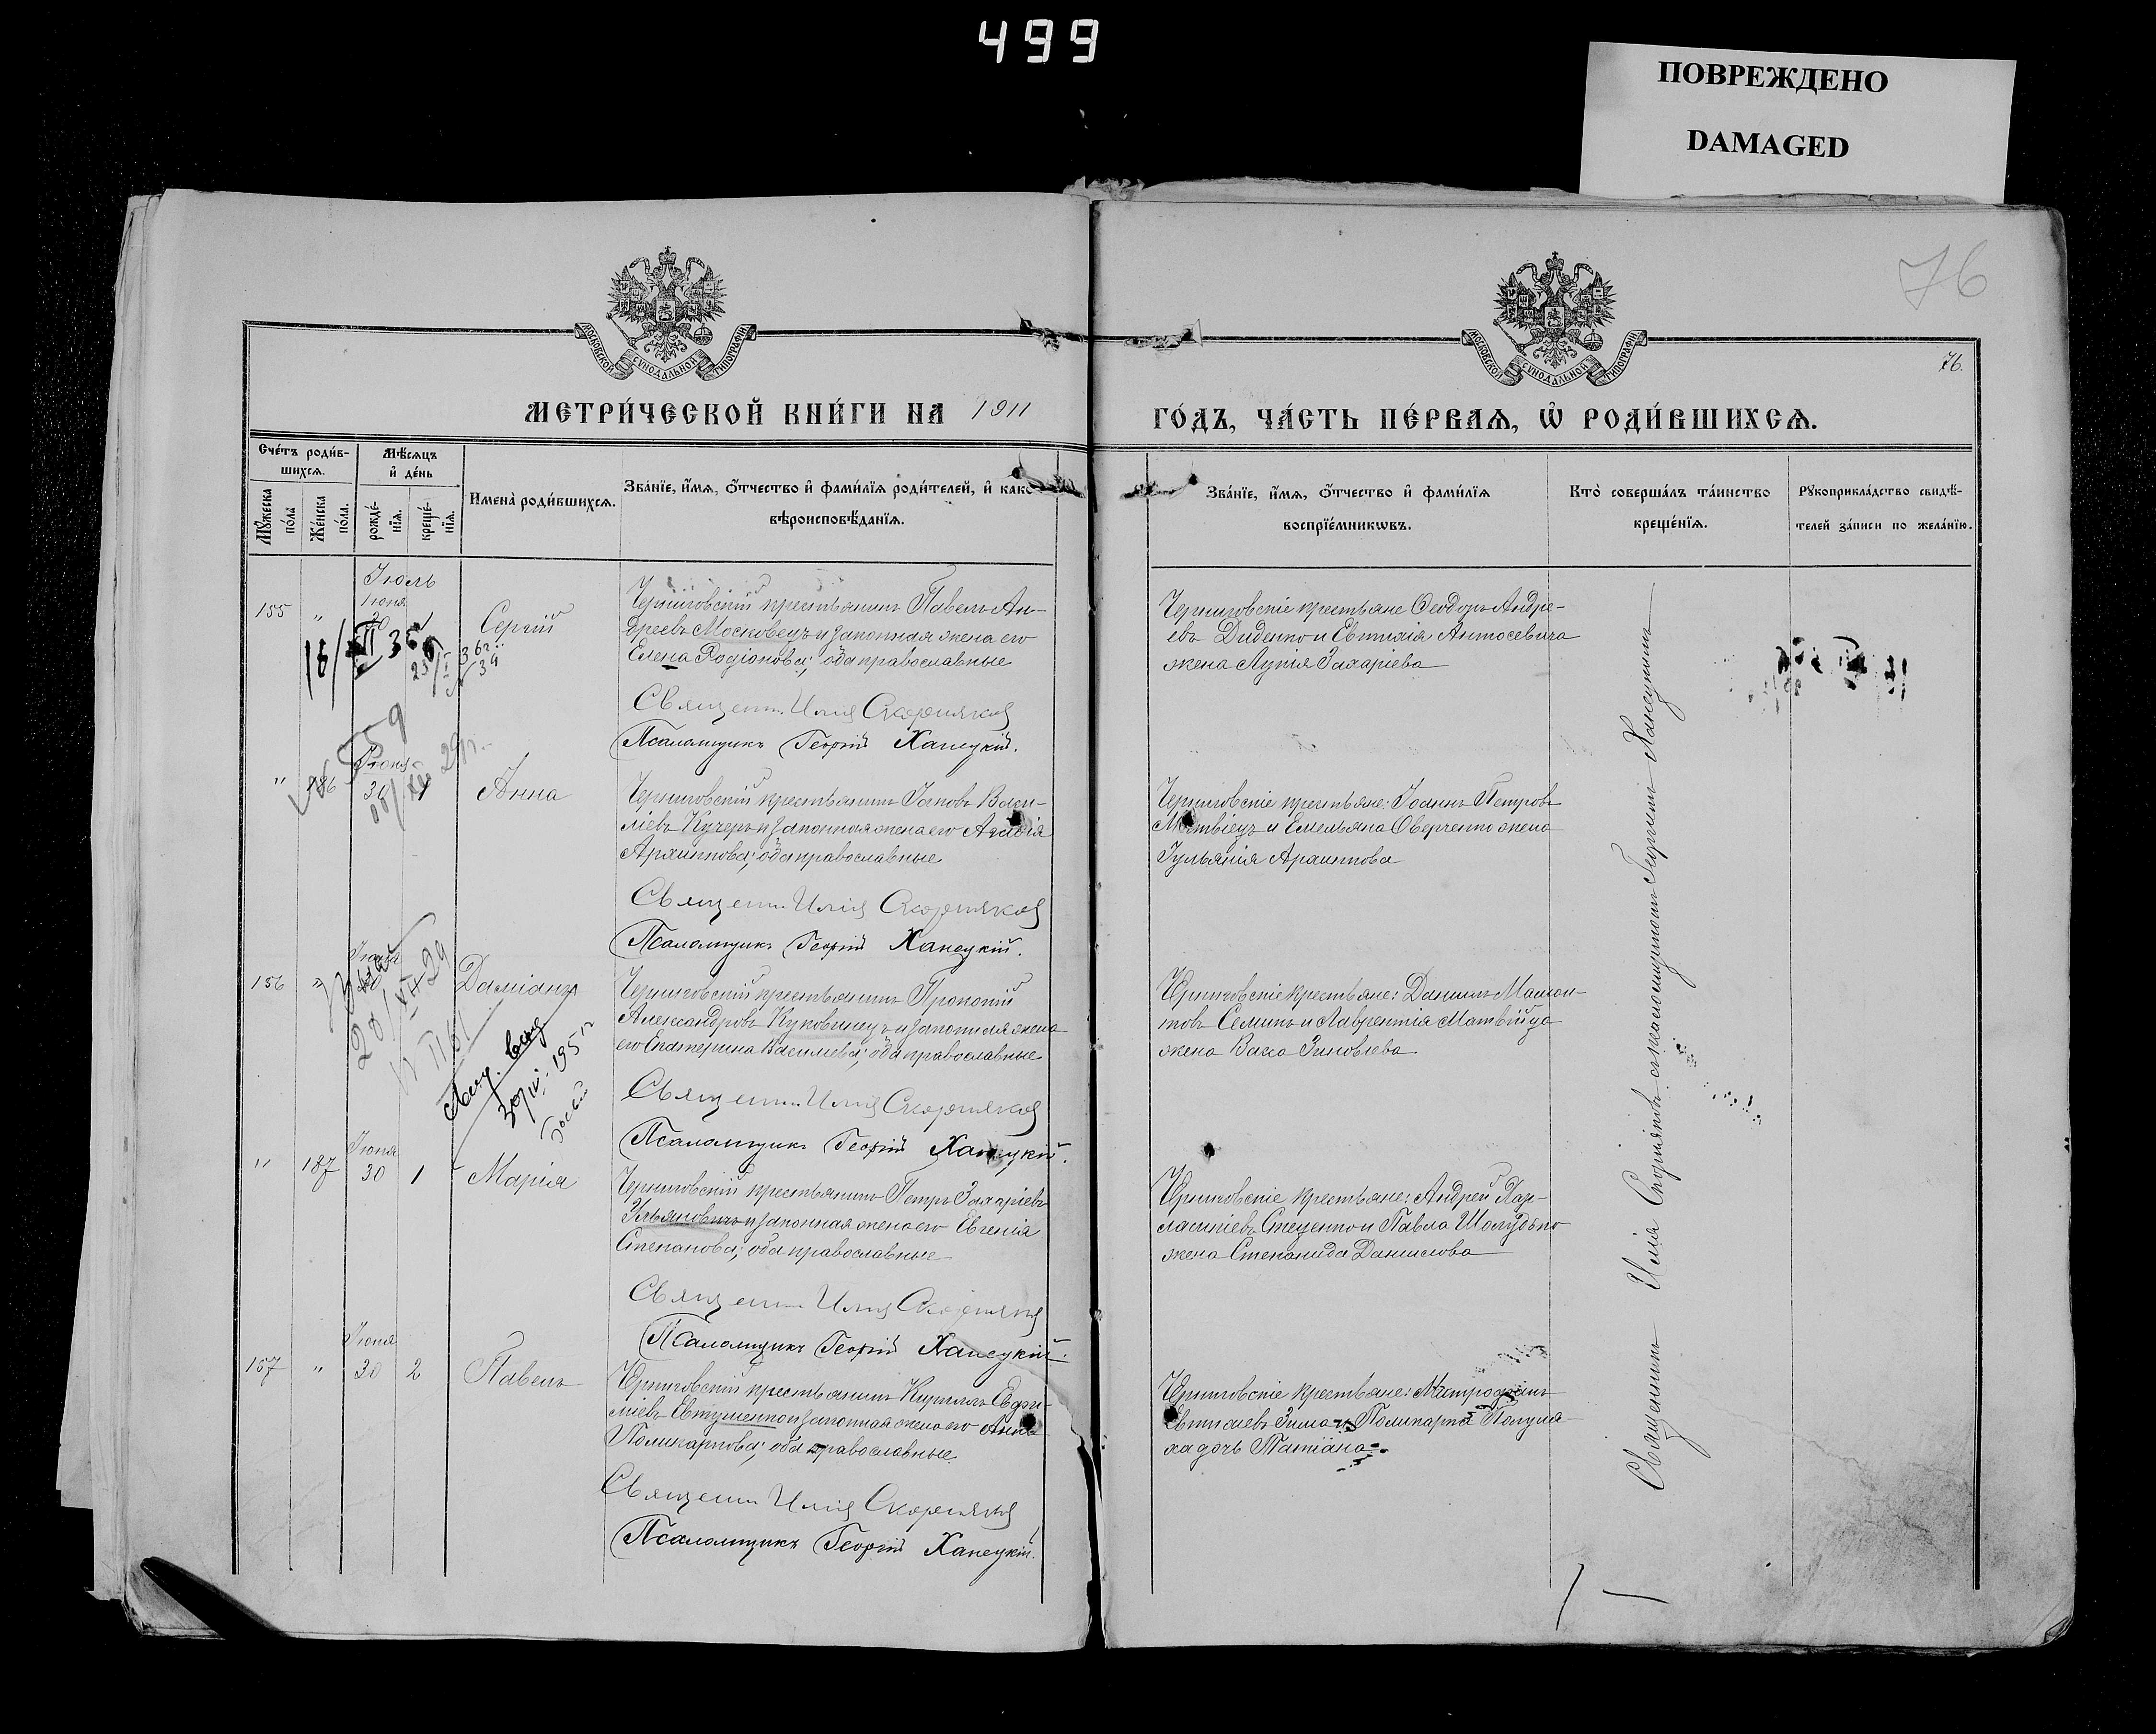 499
ПОВРЕЖДЕНО
DAMAGED
76
76.
МОСКОВСКОЙ СѴНОДАЛЬНОЙ ТИПОГРАФІИ
МОСКОВСКОЙ СѴНОДАЛЬНОЙ ТИПОГРАФІИ
МЕТРИ́ЧЕСКОЙ КНИ́ГИ НА 1911
ГО́ДЪ, ЧА́СТЬ ПЕ́РВАѦ, Ѡ҆ РОДИ́ВШИХСѦ.
Сче́тъ роди́в-
шихсѧ.
Мꙋ́жеска
по́ла
Же́нска
по́ла.
Мѣ́сѧцъ
и҆ де́нь
рожде́-
нїѧ.
креще́-
нїѧ.
Имена̀ роди́вшихсѧ.
Зва́нїе, и҆́мѧ, ѻ҆́тчество и҆ фами́лїѧ роди́телей, и҆ како
вѣроисповѣ́данїѧ.
Зва́нїе, и҆́мѧ, ѻ҆́тчество и҆ фами́лїѧ
воспрїе́мникѡвъ.
Кто̀ соверша́лъ та́инство
креще́нїѧ.
Рꙋкоприкла́дство свидѣ́-
телей за́писи по жела́нїю.
Іюль
155 " Іюня Сергій
Черниговскій крестьянинъ Павелъ Ан-
дреевъ Московецъ и законная жена его
Елена Родіонова; оба православные
Священ. Илія Скорняковъ
Псаломщикъ Георгій Ханецкій.
Черниговскіе крестьяне Ѳеодоръ Андре-
евъ Диденко и Евтихія Антосевича
жена Лукія Захаріева
" 186 Іюня 30 1 Анна
Черниговскій крестьянинъ Іаковъ Васи-
ліевъ Кучеръ и законная жена его
Архиппова; оба православные
Священ. Илія Скорняковъ
Псаломщикъ Георгій Ханецкій.
Черниговскіе крестьяне: Іоаннъ Петровъ
Матвіецъ и Емельяна Оверченко жена
Іульянія Архиппова
156 " Даміанъ
Черниговскій крестьянинъ Прокопій
Александровъ Куковинецъ и законная жена
его Екатерина Василіева; оба православные
Священ. Илія Скорняковъ
Псаломщикъ Георгій Ханецкій.
Черниговскіе крестьяне: Даніилъ Мамон-
товъ Семикъ и Лаврентія Матвійца
жена Васса Зиновіева
" 187 Іюня 30 1 Марія
Черниговскій крестьянинъ Петръ Захаріевъ
Ульяновичъ и законная жена его Евгенія
Степанова; оба православные
Священ. Илія Скорняковъ
Псаломщикъ Георгій Ханецкій.
Черниговскіе крестьяне: Андрей Хар-
лампіевъ Стеценко и Павла Шолудько
жена Степанида Данилова
157 " Іюня 30 2 Павелъ
Черниговскій крестьянинъ Кириллъ Евфи-
міевъ Евтушенко и законная жена его Анна
Поликарпова; оба православные
Священ. Илія Скорняковъ
Псаломщикъ Георгій Ханецкій.
Черниговскіе крестьяне: Митрофанъ
Евтихіевъ Зима и Поликарпа
дочь Татіана
Священникъ Илія Скорняковъ съ псаломщикомъ Георгіемъ Ханецкимъ